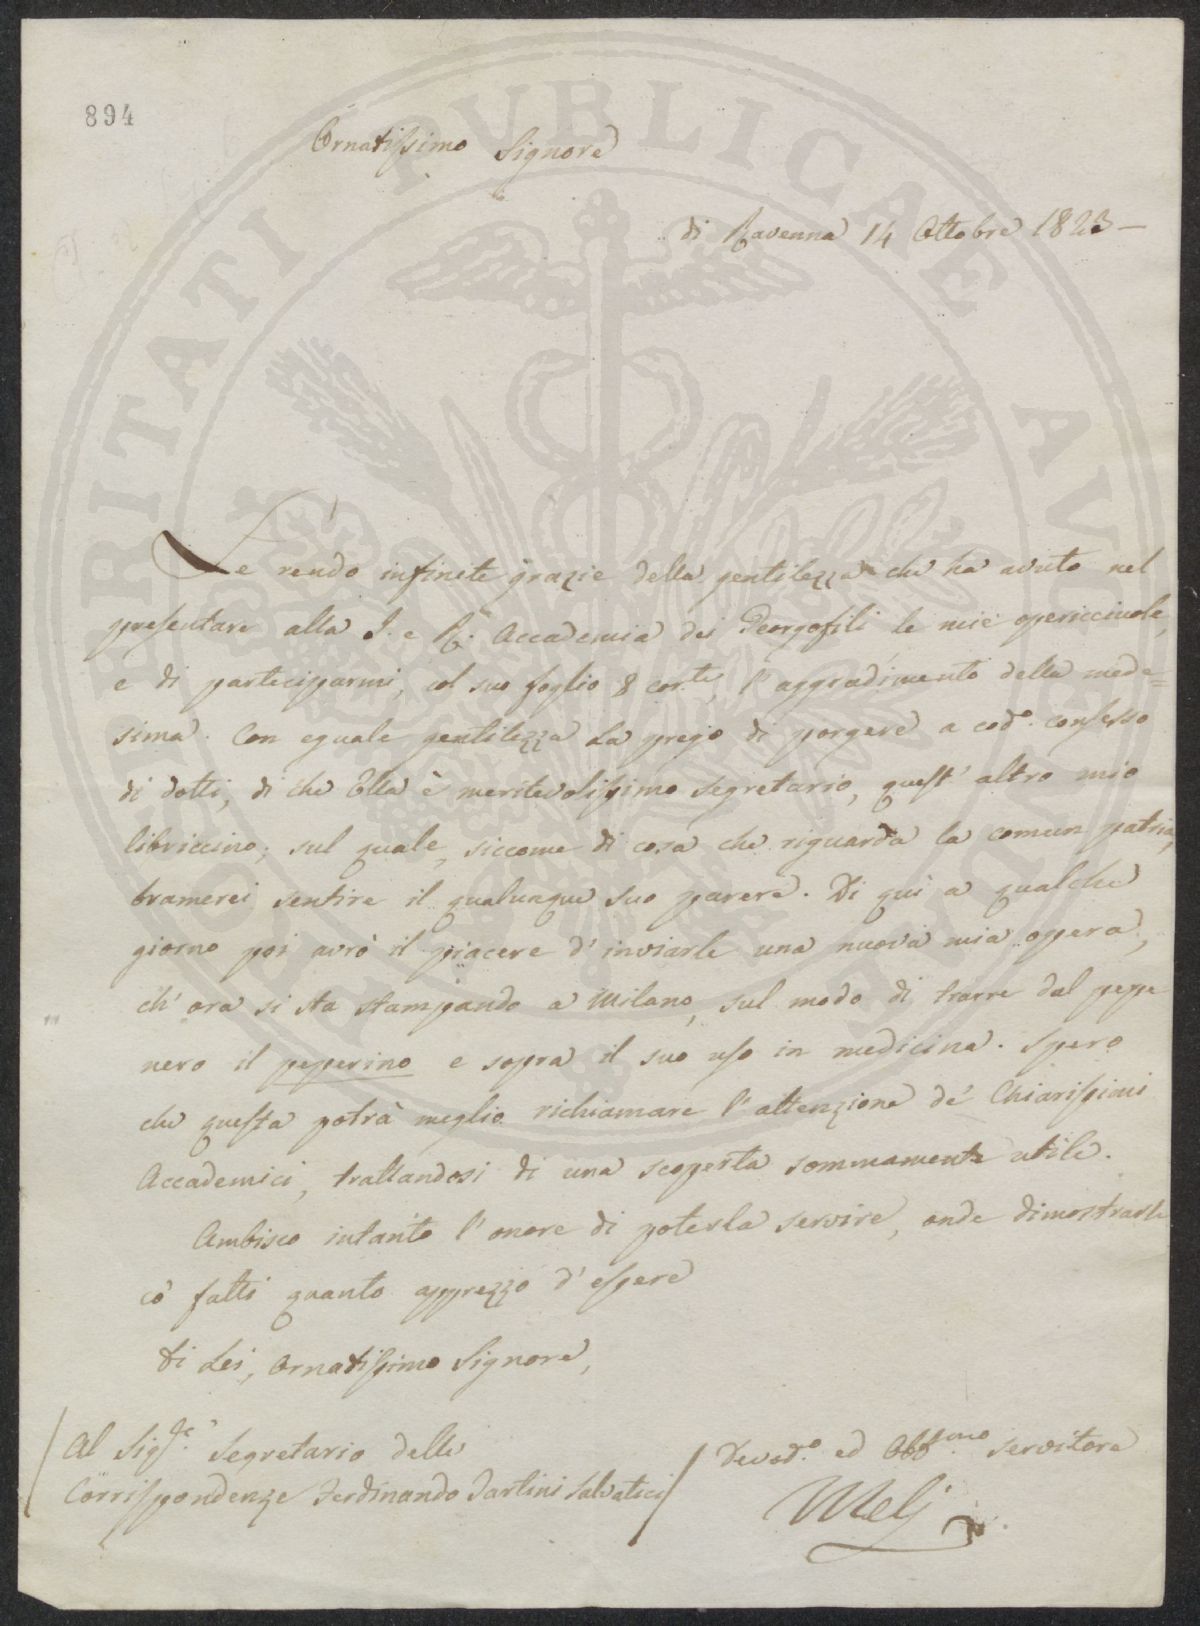 894
Ornatissimo Signore
di Ravenna 14 Ottobre 1823 —
Le rendo infinete grazie della gentilezza che ha avuto nel
presentare alla I. e R. Accademia dei Georgofili le mie opericciuole,
e di parteciparmi, col suo foglio 8 cor.te, l'aggradimento della mede=
sima. Con eguale gentilezza La prego di porgere a cod.o consesso
di dotti, di che Ella è meritevolissimo segretario, quest'altro mio
libriccino; sul quale, siccome di cosa che riguarda la comun patria,
bramerei sentire il qualunque suo parere. Di quì a qualche
giorno poi avrò il piacere d'inviarle una nuova mia opera,
ch'ora si sta stampando a Milano, sul modo di trarre dal pepe
nero il peperino e sopra il suo uso in medicina. Spero
che questa potrà meglio richiamare l'attenzione de' Chiarissimi
Accademici, trattandosi di una scoperta sommamente utile.
Ambisco intanto l'onore di poterla servire, onde dimostrarle
co' fatti quanto apprezzo d'essere
Di Lei, Ornatissimo Signore,
Al Sig.re Segretario delle
Corrispondenze Ferdinando Tartini Salvatici
Devod.o ed Obb.mo servitore
Melj
OPERITATI PVBLICAE AVGENDAE
PROSPERITATI